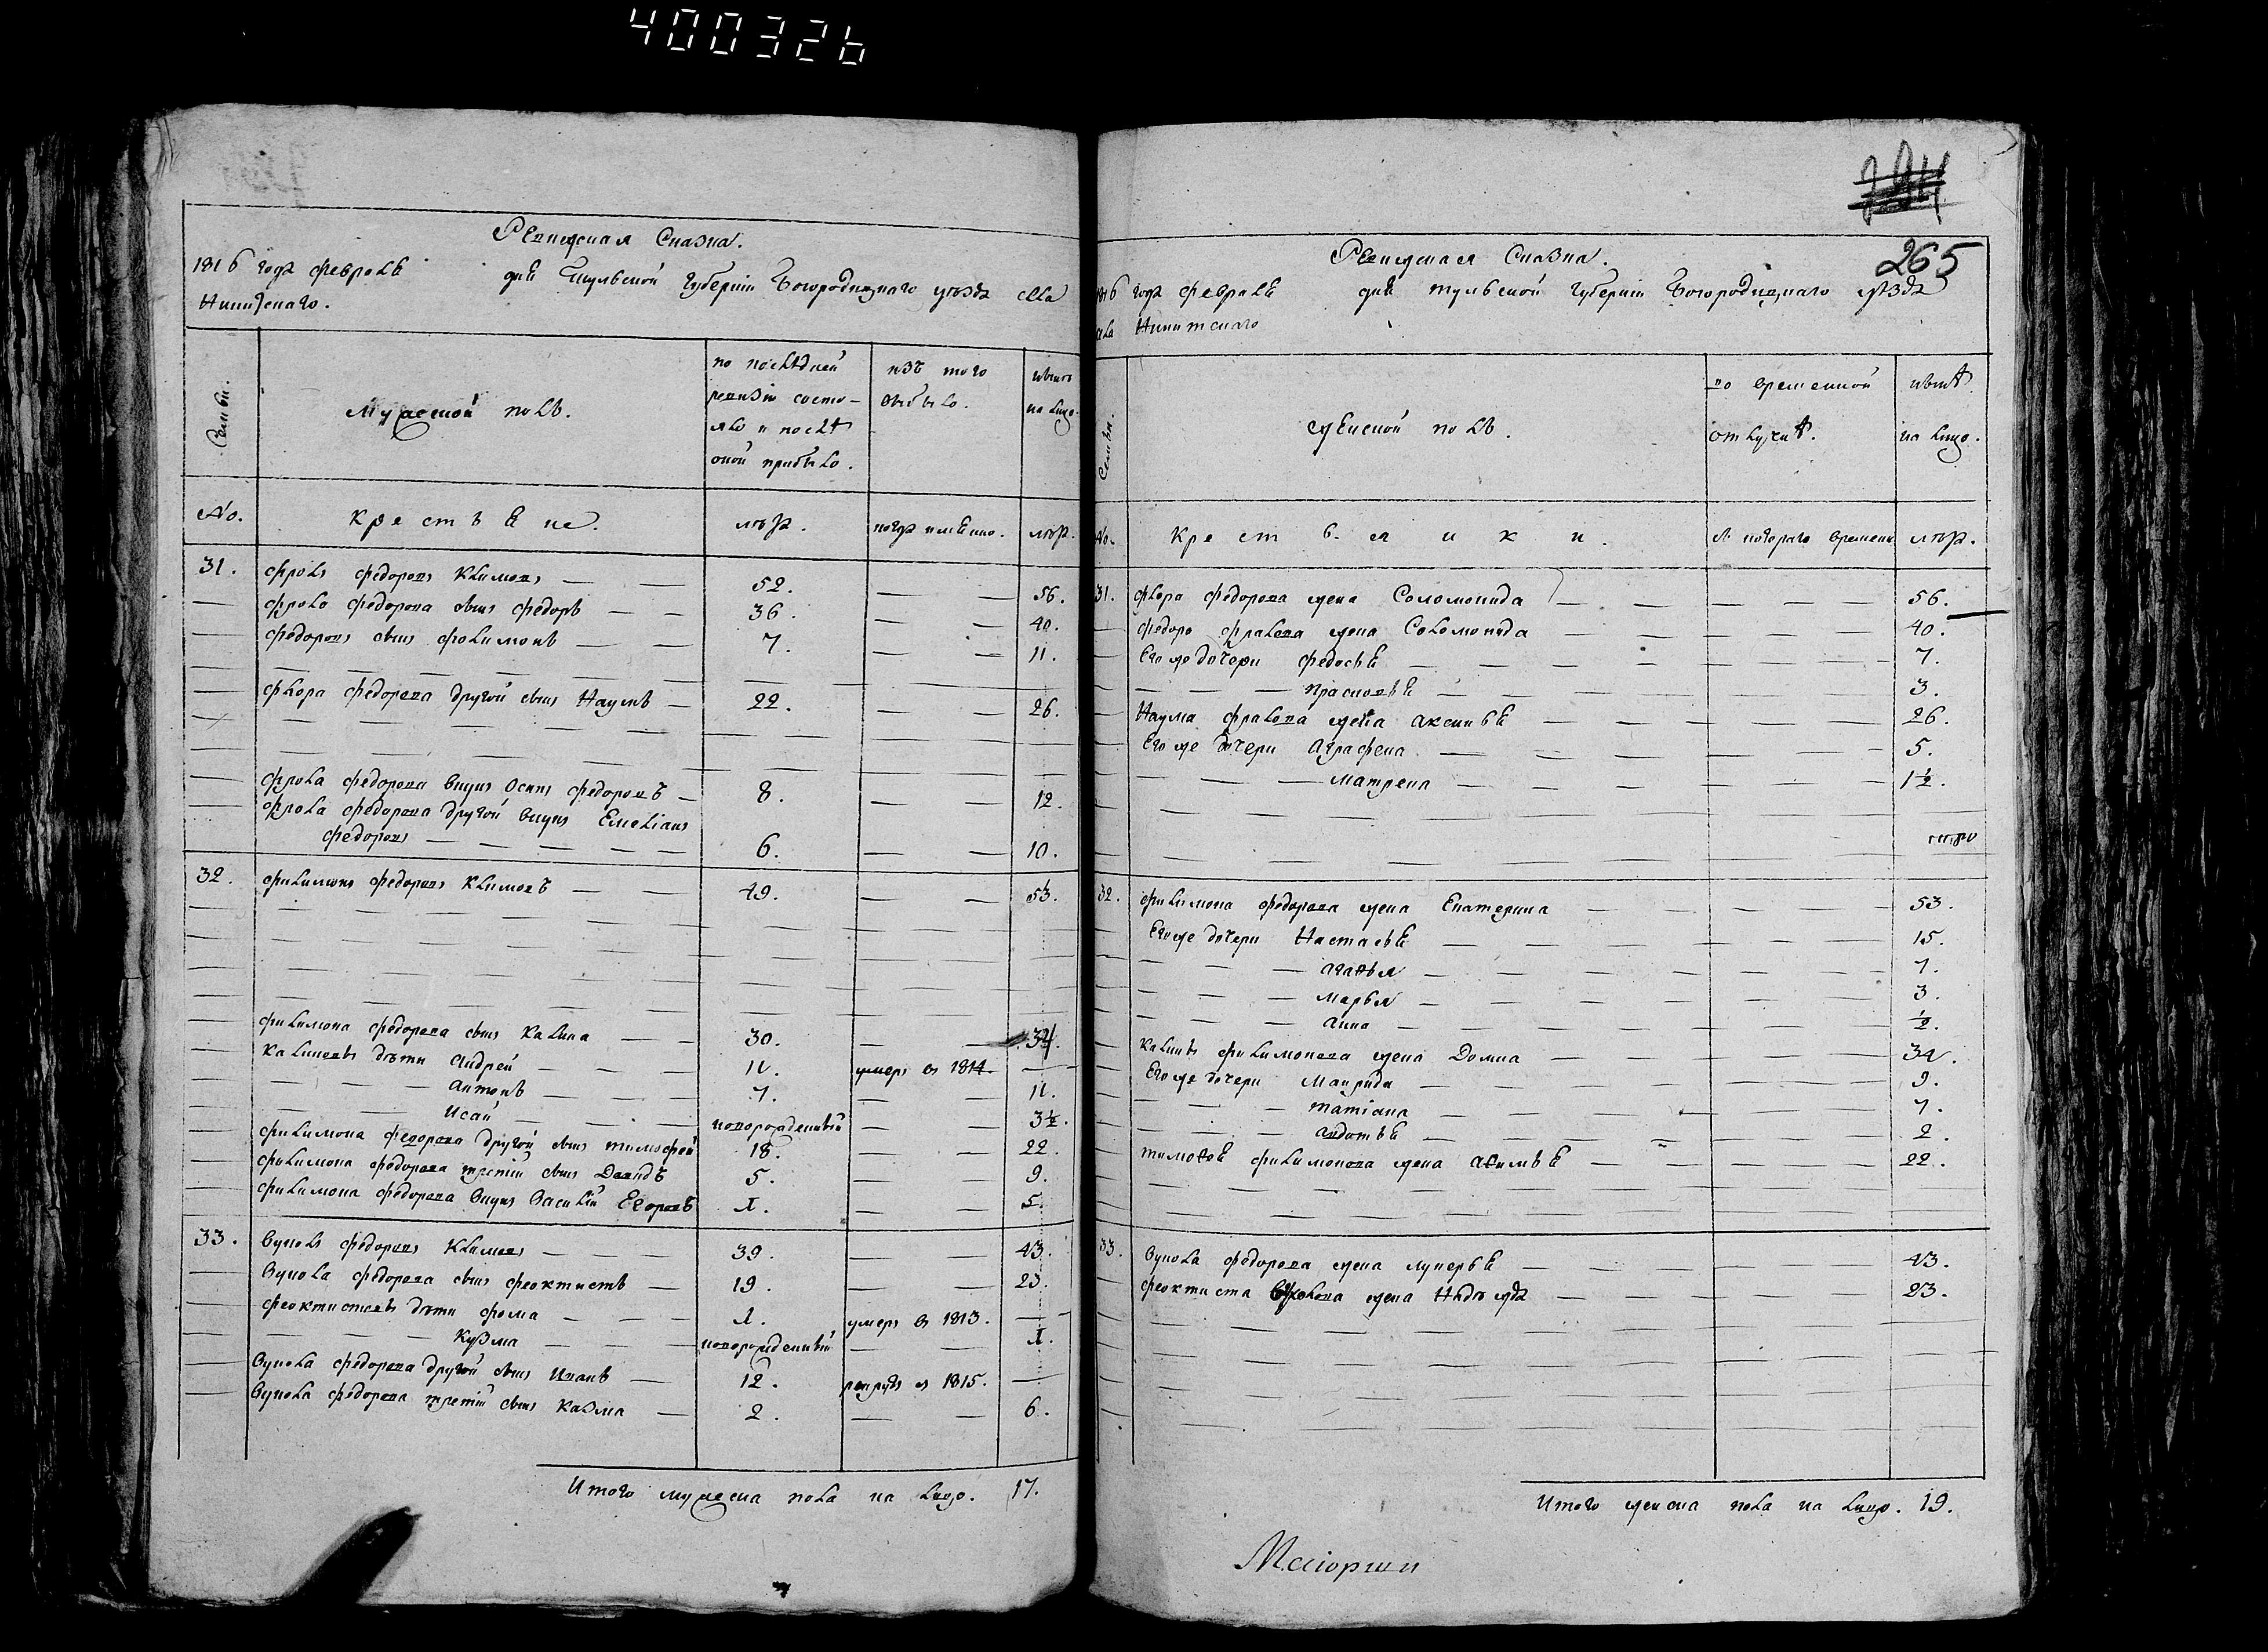 400326
Ревижская Сказка.
1816 года февраля дня Тульской Губернiи Богородицкаго уѣзда села
Никицкаго.
Семьи.
Мужеской полъ.
по последней ревизiи состояло и после оной прибыло.
изъ того выбыло.
ныне на лицо.
No. Крестьяне. лѣта. когда имянно. лѣта.
31. Фролъ Федоровъ Климовъ 52. 56.
Фрола Федорова сынъ Федоръ 36. 40.
Федоровъ сынъ Филимонъ 7. 11.
Флора Федорова другой сынъ Наумъ 22. 26.
Фрола Федорова внукъ Осипъ Федоровъ 8. 12.
Фрола Федорова другой внукъ Емелiанъ
Федоровъ 6. 10.
32. Филимонъ Федоровъ Климовъ 49. 53.
Филимона Федорова сынъ Калина 30. 34.
Калиновы дѣти Андрей 11. умеръ въ 1814.
Антонъ 7. 11.
Исай новорожденный 3½.
Филимона Федорова другой сынъ Тимофей 18. 22.
Филимона Федорова третiй сынъ Давидъ 5. 9.
Филимона Федорова внукъ Василiй Егоровъ 1. 5.
33. Вуколъ Федоровъ Климовъ 39. 43.
Вукола Федорова сынъ Феоктистъ 19. 23.
Феоктистовы дѣти Фома 1. умеръ въ 1813.
Кузма новорожденный 1.
Вукола Федорова другой сынъ Иванъ 12. рекрутъ въ 1815.
Вукола Федорова третiй сынъ Казма 2. 6.
Итого мужеска пола на лицо. 17.
265
Ревижская Сказка.
1816 года февраля дня тульской Губернiи Богородицкаго уѣзда
села Никитскаго
Семьи.
Женской полъ.
во временной отлучке.
ныне на лицо.
No. Крестьянки. съ котораго времени лѣта.
31. Флора Федорова жена Соломонида 56.
Федора Фралова жена Соломонида 40.
Его же дочери Федосья 7.
Прасковья 3.
Наума Фралова жена Аксинья 26.
Его же дочери Аграфена 5.
Матрена 1½.
32. Филимона Федорова жена Екатерина 53.
Его же дочери Настасья 15.
Агафья 7.
Марья 3.
Анна ½.
Калины Филимонова жена Домна 34.
Его же дочери Маврида 9.
Татiана 7.
Авдотья 2.
Тимофея Филимонова жена Акимья 22.
33. Вукола Федорова жена Лукерья 43.
Феоктиста Вуколова жена Надежда 23.
Итого женска пола на лицо. 19.